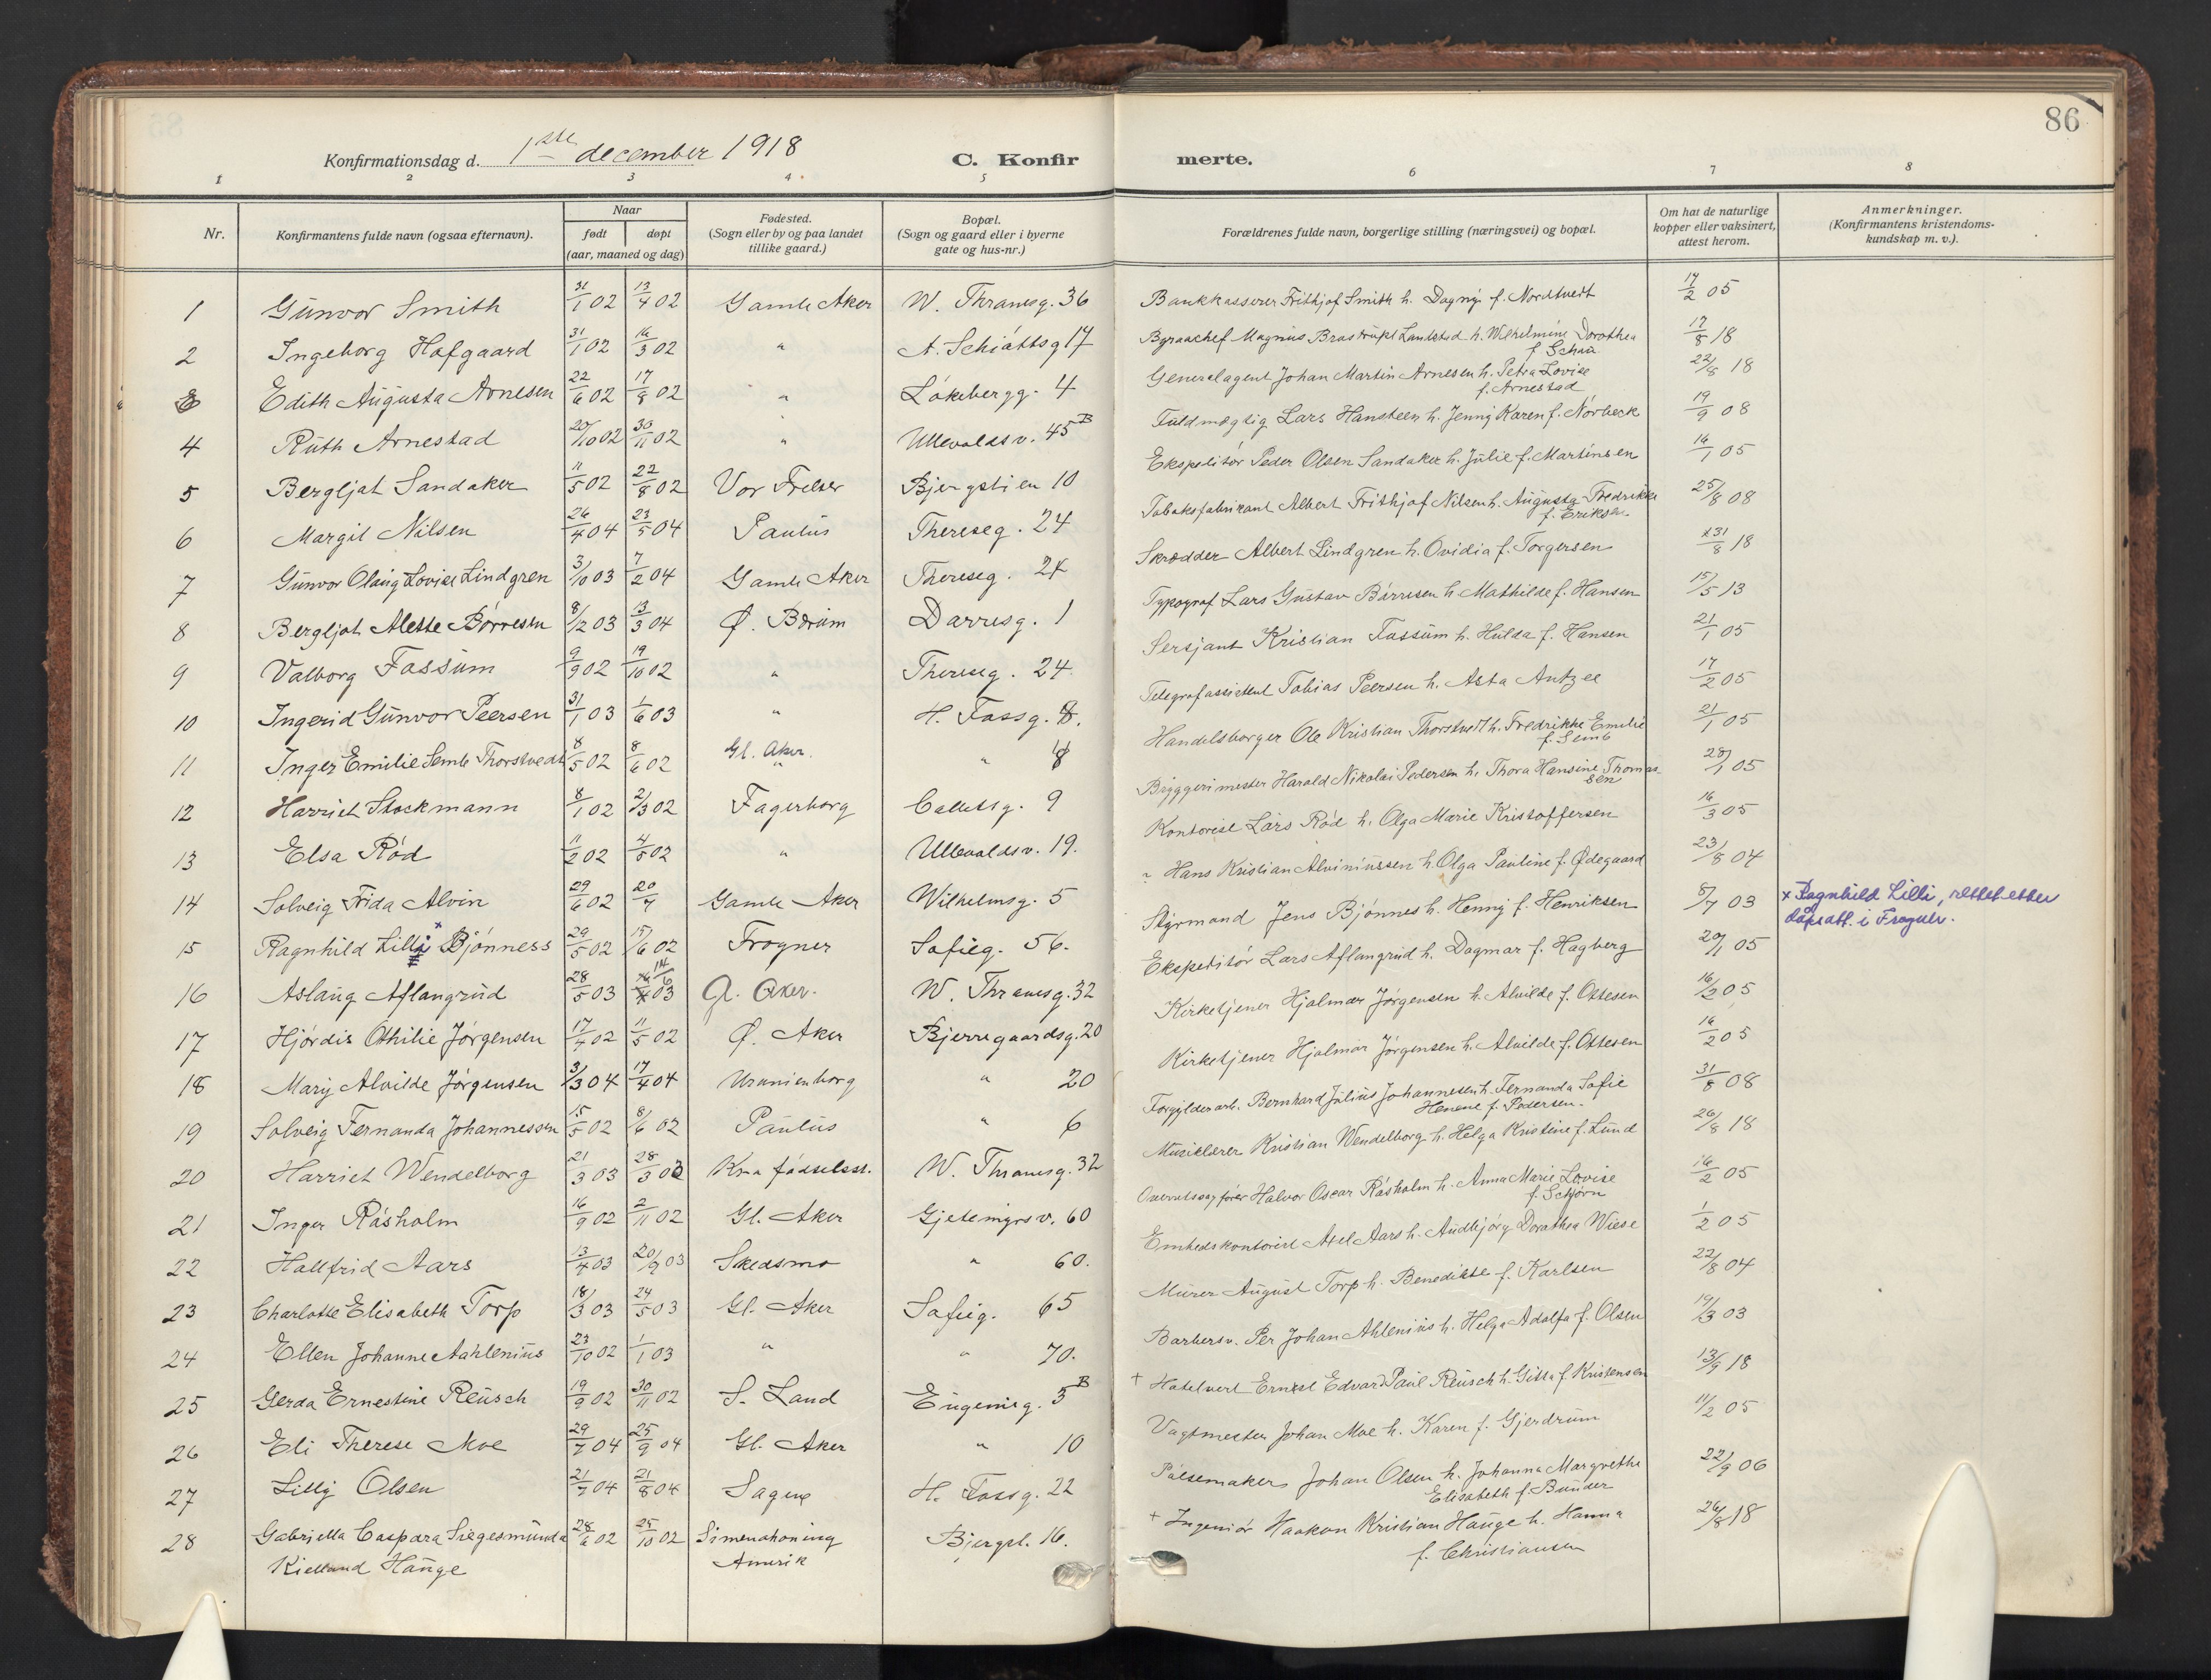 Konfirmationsdag d. 1ste december 1918 C. Konfir merte. 86
1 2 3 4 5 6 7 8
Nr. Konfirmantens fulde navn (ogsaa efternavn). Naar født døpt (aar, maaned og dag) Fødested. (Sogn eller by og paa landet tillike gaard.) Bopæl. (Sogn og gaard eller i byerne gate og hus-nr.) Forældrenes fulde navn, borgerlige stilling (næringsvei) og bopæl. Om hat de naturlige kopper eller vaksinert, attest herom. Anmerkninger. (Konfirmantens kristendoms-kundskap m. v.).
1 Gunvor Smith 31/1 02 13/4 02 Gamle Aker W. Thranesg. 36 Bankkasserer Frithjof Smith h. Dagny f. Nordtvedt 14/2 05
2 Ingeborg Hofgaard 31/1 02 16/3 02 " A. Schiøttsg 17 Byraachef Magnus Landstad h. Wilhelmine Dorothea f. Schou 17/8 18
3 Edith Augusta Arnesen 22/6 02 17/8 02 " Løkebergg. 4 Generalagent Johan Martin Arnesen h. Petra Lovise f. Arnestad 22/8 18
4 Ruth Arnestad 20/10 02 30/11 02 " Ullevoldsv. 45B Fuldmægtig Lars Hansteen h. Jenny Karen f. Nørbeck 19/9 08
5 Bergljot Sandaker 11/5 02 22/8 02 Vor Frelser Bjergstien 10 Ekspeditør Peder Olsen Sandaker h. Julie f. Martinsen 16/1 05
6 Margit Nilsen 26/4 04 23/5 04 Paulus Thereseg. 24 Tobaksfabrikant Albert Frithjof Nilsen h. Augusta Fredrikke f. Eriksen 25/8 08
7 Gunvor Olaug Lovise Lindgren 3/10 03 7/2 04 Gamle Aker Thereseg. 24 Skrædder Albert Lindgren h. Ovidia f. Torgersen x31/8 18
8 Bergljot Alette Børresen 8/12 03 13/3 04 Ø. Bærum Darresg. 1 Typograf Lars Gustav Børresen h. Mathilde f. Hansen 15/5 13
9 Valborg Fossum 9/9 02 19/10 02 " Thereseg. 24 Sersjant Kristian Fossum h. Hulda f. Hansen 21/1 05
10 Ingerid Gunvor Peersen 31/1 03 1/6 03 " H. Fossg. 8. Telegrafassistent Tobias Peersen h. Asta Antzee 17/2 05
11 Inger Emilie Semb Thorstvedt 8/5 02 8/6 02 Gl. Aker " 8 Handelsborger Ole Kristian Thorstvedt h. Fredrikke Emilie f. Semb 21/1 05
12 Harriet Stockmann 8/1 02 2/3 02 Fagerborg Colletsg. 9 Bryggerimester Harald Nikolai Pedersen h. Thora Hansine Thomassen 28/1 05
13 Elsa Rød 11/2 02 4/5 02 " Ullevoldsv. 19. Kontorist Lars Rød h. Olga Marie Kristoffersen 16/3 05
14 Solveig Frida Alvin 29/6 02 20/7 Gamle Aker Wilhelmsg. 5 " Hans Kristian Alviniussen h. Olga Pauline f. Ødegaard 23/8 04
15 Ragnhild Lilli x Bjønness 29/5 02 15/6 02 Frogner Sofieg. 56. Styrmand Jens Bjønnes h. Henny f. Henriksen 5/7 03 x Ragnhild Lilli, rettet etter
dåpsatt. i Frogner.
16 Aslaug Aflangrud 28/5 03 14/6 03 Gl. Aker. W. Thranesg. 32 Ekspeditør Lars Aflangrud h. Dagmar f. Hagberg 20/1 05
17 Hjørdis Othilie Jørgensen 17/4 02 11/5 02 Ø. Aker Bjerregaardsg. 20 Kirketjener Hjalmar Jørgensen h. Alvilde f. Ottesen 16/2 05
18 Mary Alvilde Jørgensen 3/3 04 17/4 04 Uranienborg " 20 Kirketjener Hjalmar Jørgensen h. Alvilde f. Ottesen 16/2 05
19 Solveig Fernanda Johannessen 15/5 02 8/6 02 Paulus " 6 Forgylderarb. Bernhard Julius Johannesen h. Fernanda Sofie f. Pedersen. 31/8 08
20 Harriet Wendelborg 21/3 03 28/3 03 Kra fødselsst. W. Thranesg. 32 Musiklærer Kristian Wendelborg h. Helga Kristine f. Lund 26/8 18
21 Inger Råsholm 16/9 02 2/11 02 Gl. Aker Gjetemyrsv. 60 Overretssagfører Halvor Oscar Råsholm h. Anna Marie Lovise f. Schjørn 16/2 05
22 Hallfrid Aars 13/4 03 20/9 03 Skedsmo " 60. Emhedskontorist Axel Aars h. Audbjørg Dorothea Wiese 1/2 05
23 Charlotte Elisabeth Torp 18/3 03 24/5 03 Gl. Aker Sofieg. 65 Murer August Torp h. Benedikte f. Karlsen 22/8 04
24 Ellen Johanne Aahlenius 23/10 02 1/1 03 " " 70. Barbersv. Per Johan Ahlenius h. Helga Adolfa f. Olsen 19/3 03
25 Gerda Ernestine Reusch 19/9 02 30/11 02 S. Land Eugenieg. 5B + Hotelvert Ernest Edvard Paul Reusch h. Gitta f. Kristensen 13/9 18
26 Eli Therese Moe 29/7 04 25/9 04 Gl. Aker " 10 Vagtmester Johan Moe h. Karen f. Gjerdrum 11/2 05
27 Lilly Olsen 21/7 04 21/8 04 Sagene H. Fossg. 22 Pølsemaker Johan Olsen h. Johanna Margrethe Elisabeth f. Bunder 22/9 06
28 Gabriella Caspara Siegesmunda 28/6 02 25/10 02 Bjergst. 16. + Ingeniør Haakon Kristian Hauge h. Hanna 26/8 18
Kielland Hauge Amerik f. Christiansen